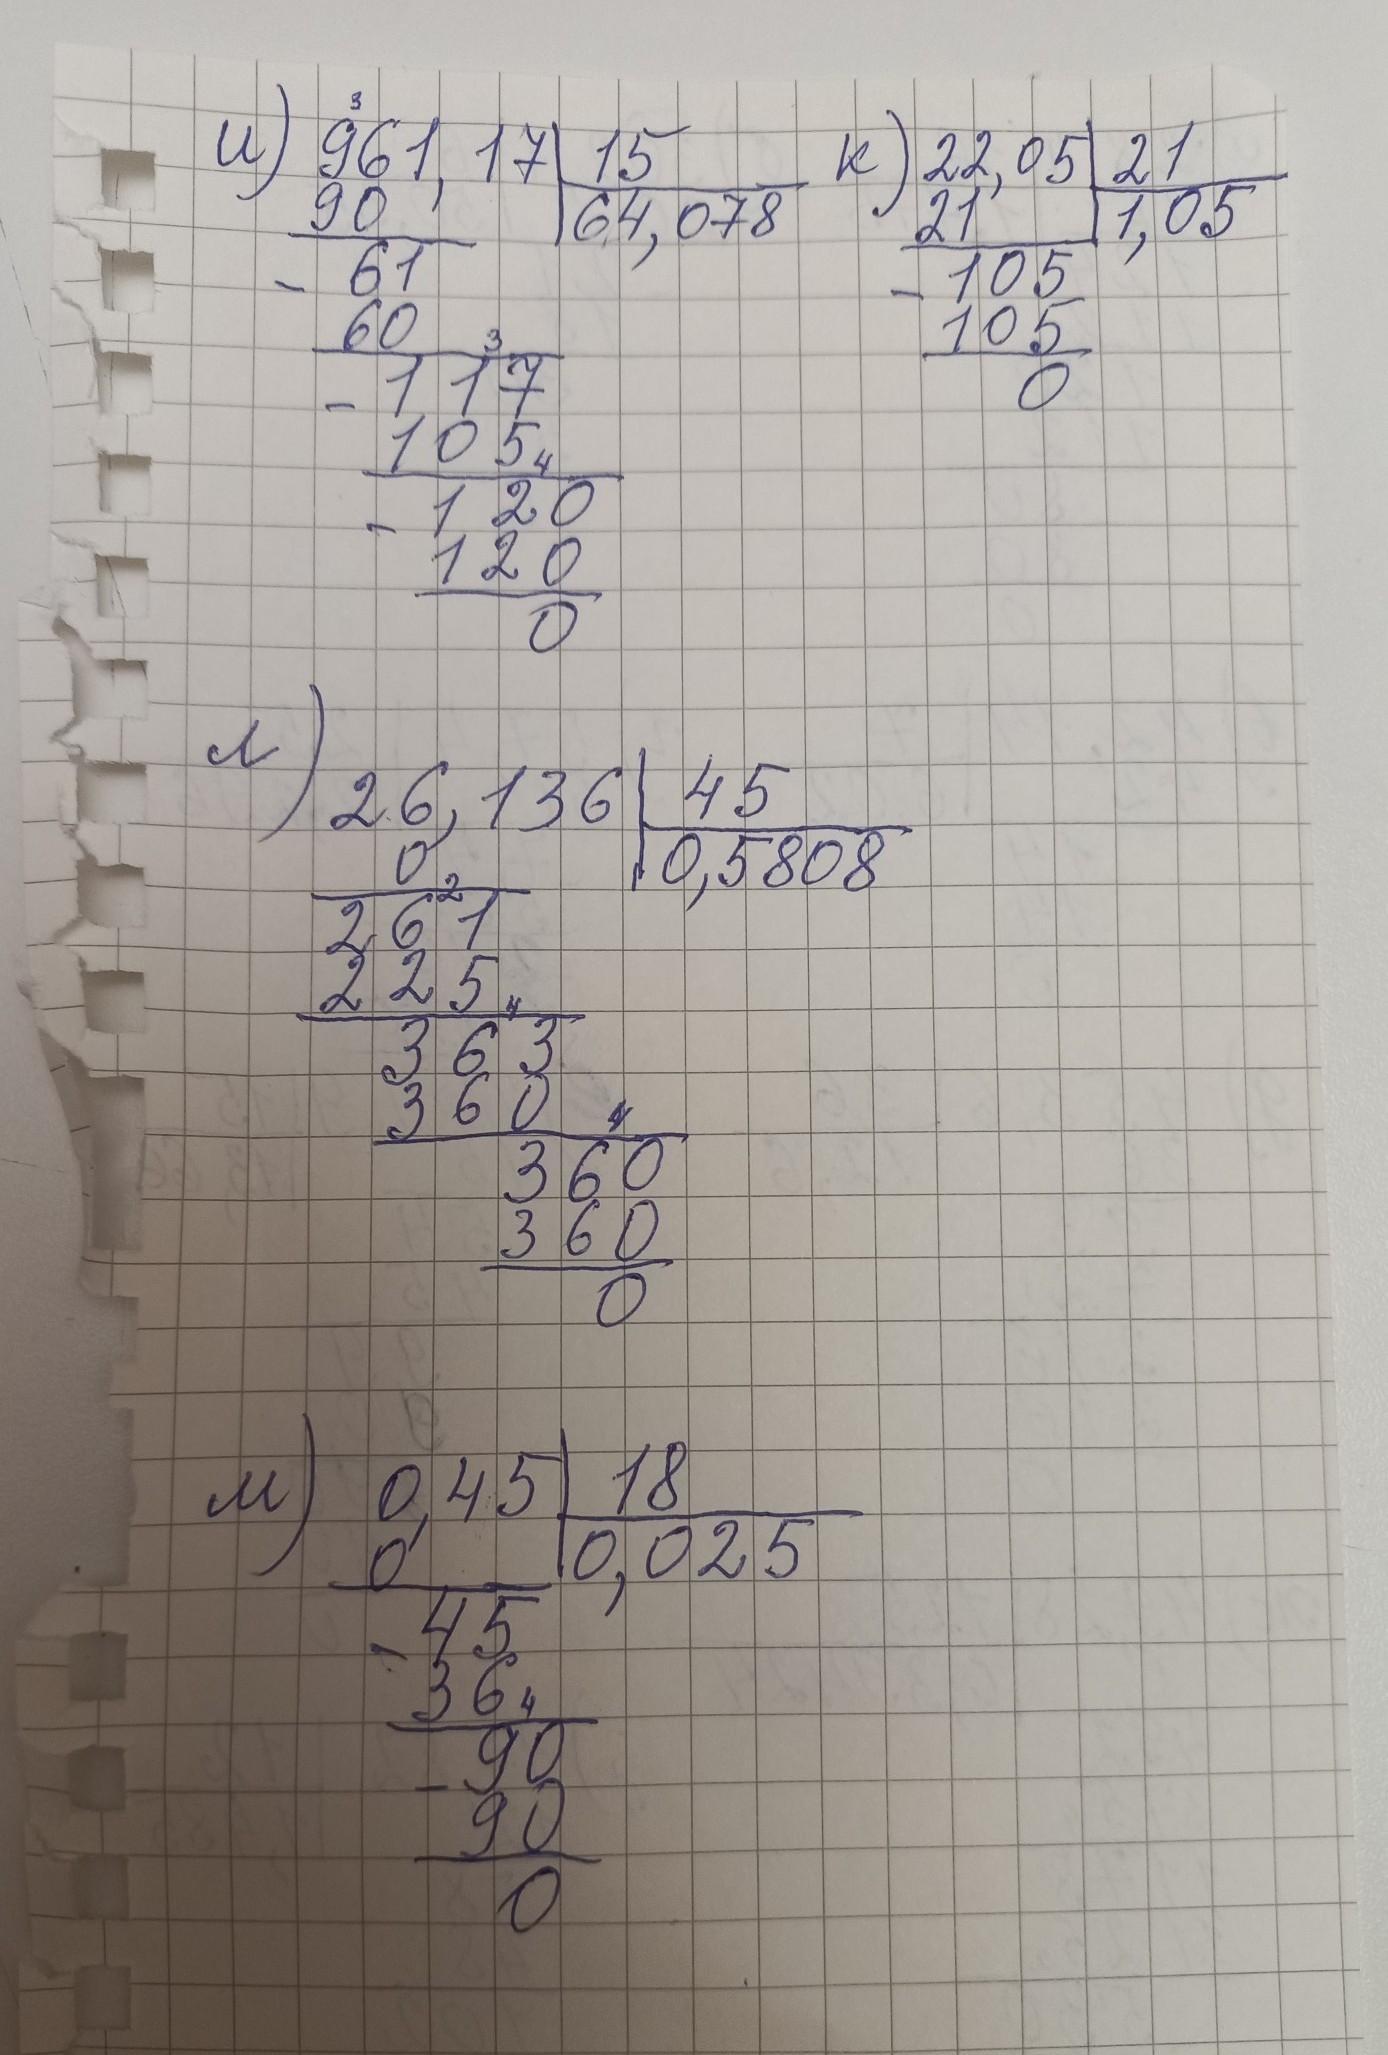 и) 961,17 | 15
90 | 64,078
- 61
60
- 117
105
- 120
120
0
к) 22,05 | 21
21 | 1,05
- 105
105
0
л)
26,136 | 45
0 | 0,5808
261
225
363
360
360
360
0
м) 0,45 | 18
0 | 0,025
- 45
36
- 90
90
0